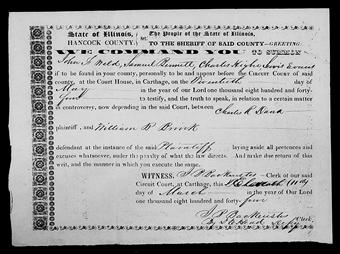 State of Illinois, The People of the State of Illinois,
HANCOCK COUNTY: TO THE SHERIFF OF SAID COUNTY—GREETING:
WE COMMAND YOU TO SUMMON
John Weld, Samuel Bennett, Charles
if to be found in your county, personally to be and appear before the CIRCUIT COURT of said
county, at the Court House, in Carthage, on the day of
May in the year of our Lord one thousand eight hundred and forty-
four to testify, and the truth to speak, in relation to a certain matter
in controversy, now depending in the said Court, between
Charles R Dana
plaintiff, and William
defendant at the instance of the said Plaintiff laying aside all pretences and
excuses whatsoever, under the penalty of what the law directs. And make the return of this
writ, and the manner in which you execute the same.
WITNESS, J B Backenstos Clerk of our said
Circuit Court, at Carthage, this Eleventh (11th)
day of March in the year of Our Lord
one thousand eight hundred and forty-four
J B Backenstos Clerk,
By